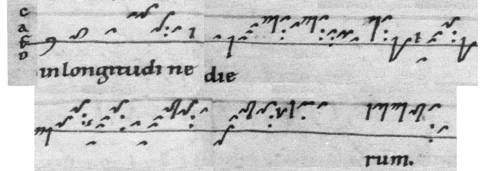 c
a
F
D
in longitudi ne die
rum.